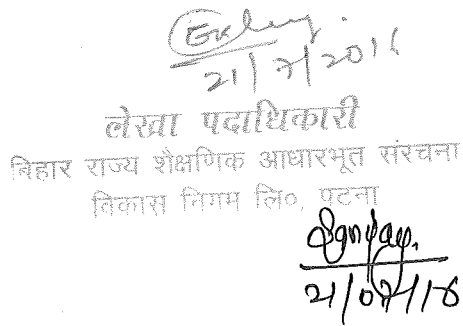 21/7/2016
लेखा पदाधिकारी
बिहार राज्य शैक्षणिक आधारभूत संरचना
विकास निगम लि०, पटना
Sanjay.
21/07/16